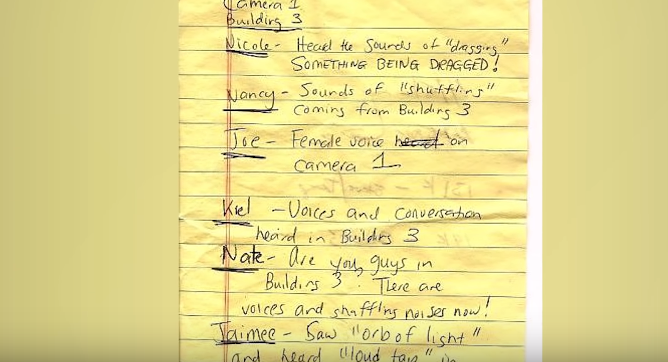 Camera 1
Building 3
Nicole - Heard the sounds of "dragging"
SOMETHING BEING DRAGGED!
Nancy - Sounds of "shuffling"
coming from Building 3
Joe - Female voice heard on
camera 1
Kiel - Voices and conversation
heard in Building 3
Nate - Are you guys in
Building 3? There are
voices and shuffling noises now!
Jaimee - Saw "orb of light"
and heard "loud tap" in